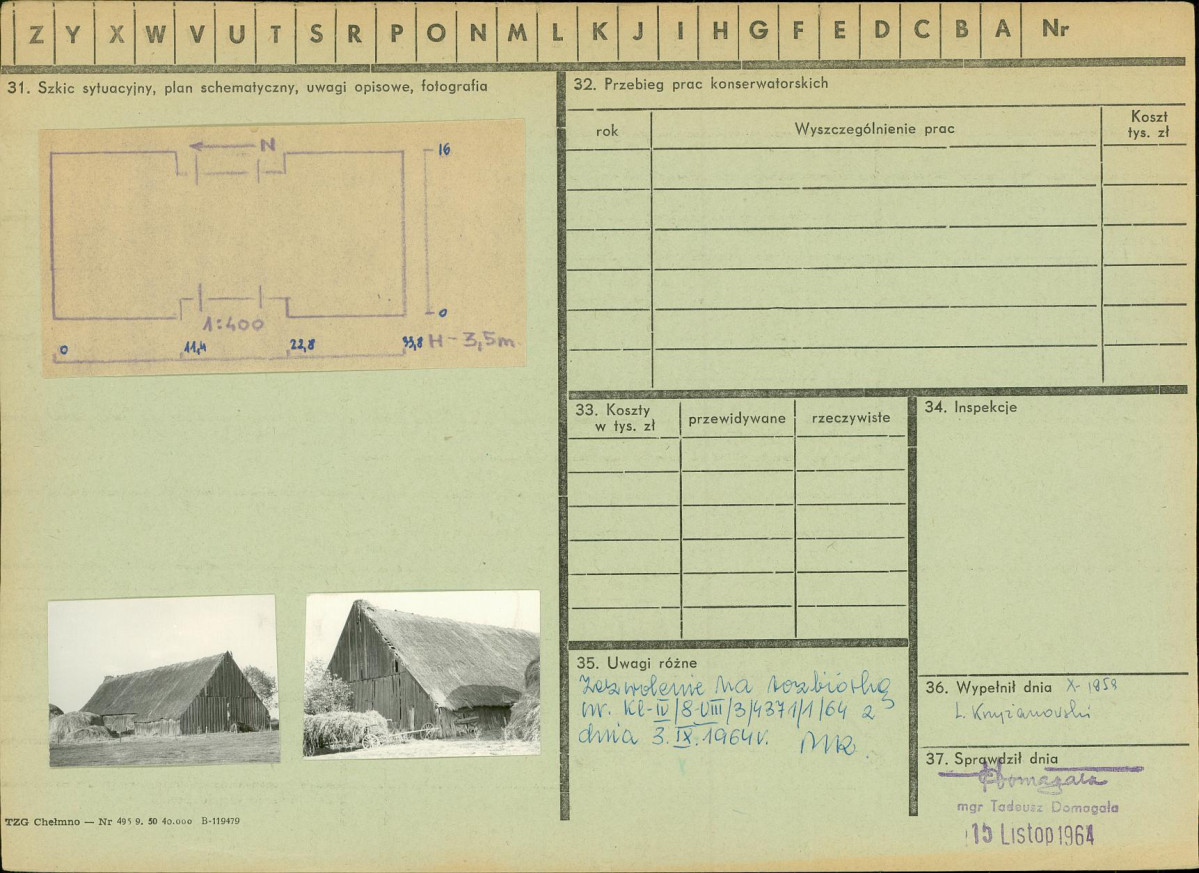 Z Y X W V U T S R P O N M L K J I H G F E D C B A Nr
31. Szkic sytuacyjny, plan schematyczny, uwagi opisowe, fotografia
N
16
0
1:400
0 11,4 22,8 33,8 H-3,5m
TZG Chełmno — Nr 495 9. 50 40.000 B-119479
32. Przebieg prac konserwatorskich
rok Wyszczególnienie prac Koszt
tys. zł
33. Koszty
w tys. zł przewidywane rzeczywiste
34. Inspekcje
35. Uwagi różne
Zezwolenie na rozbiórkę
nr. Kl-IV/8-VIII/3/4371/1/64 z
dnia 3.IX.1964r.
36. Wypełnił dnia X-1959
L. Krzyżanowski
37. Sprawdził dnia
Domagała
mgr Tadeusz Domagała
15 Listop 1964